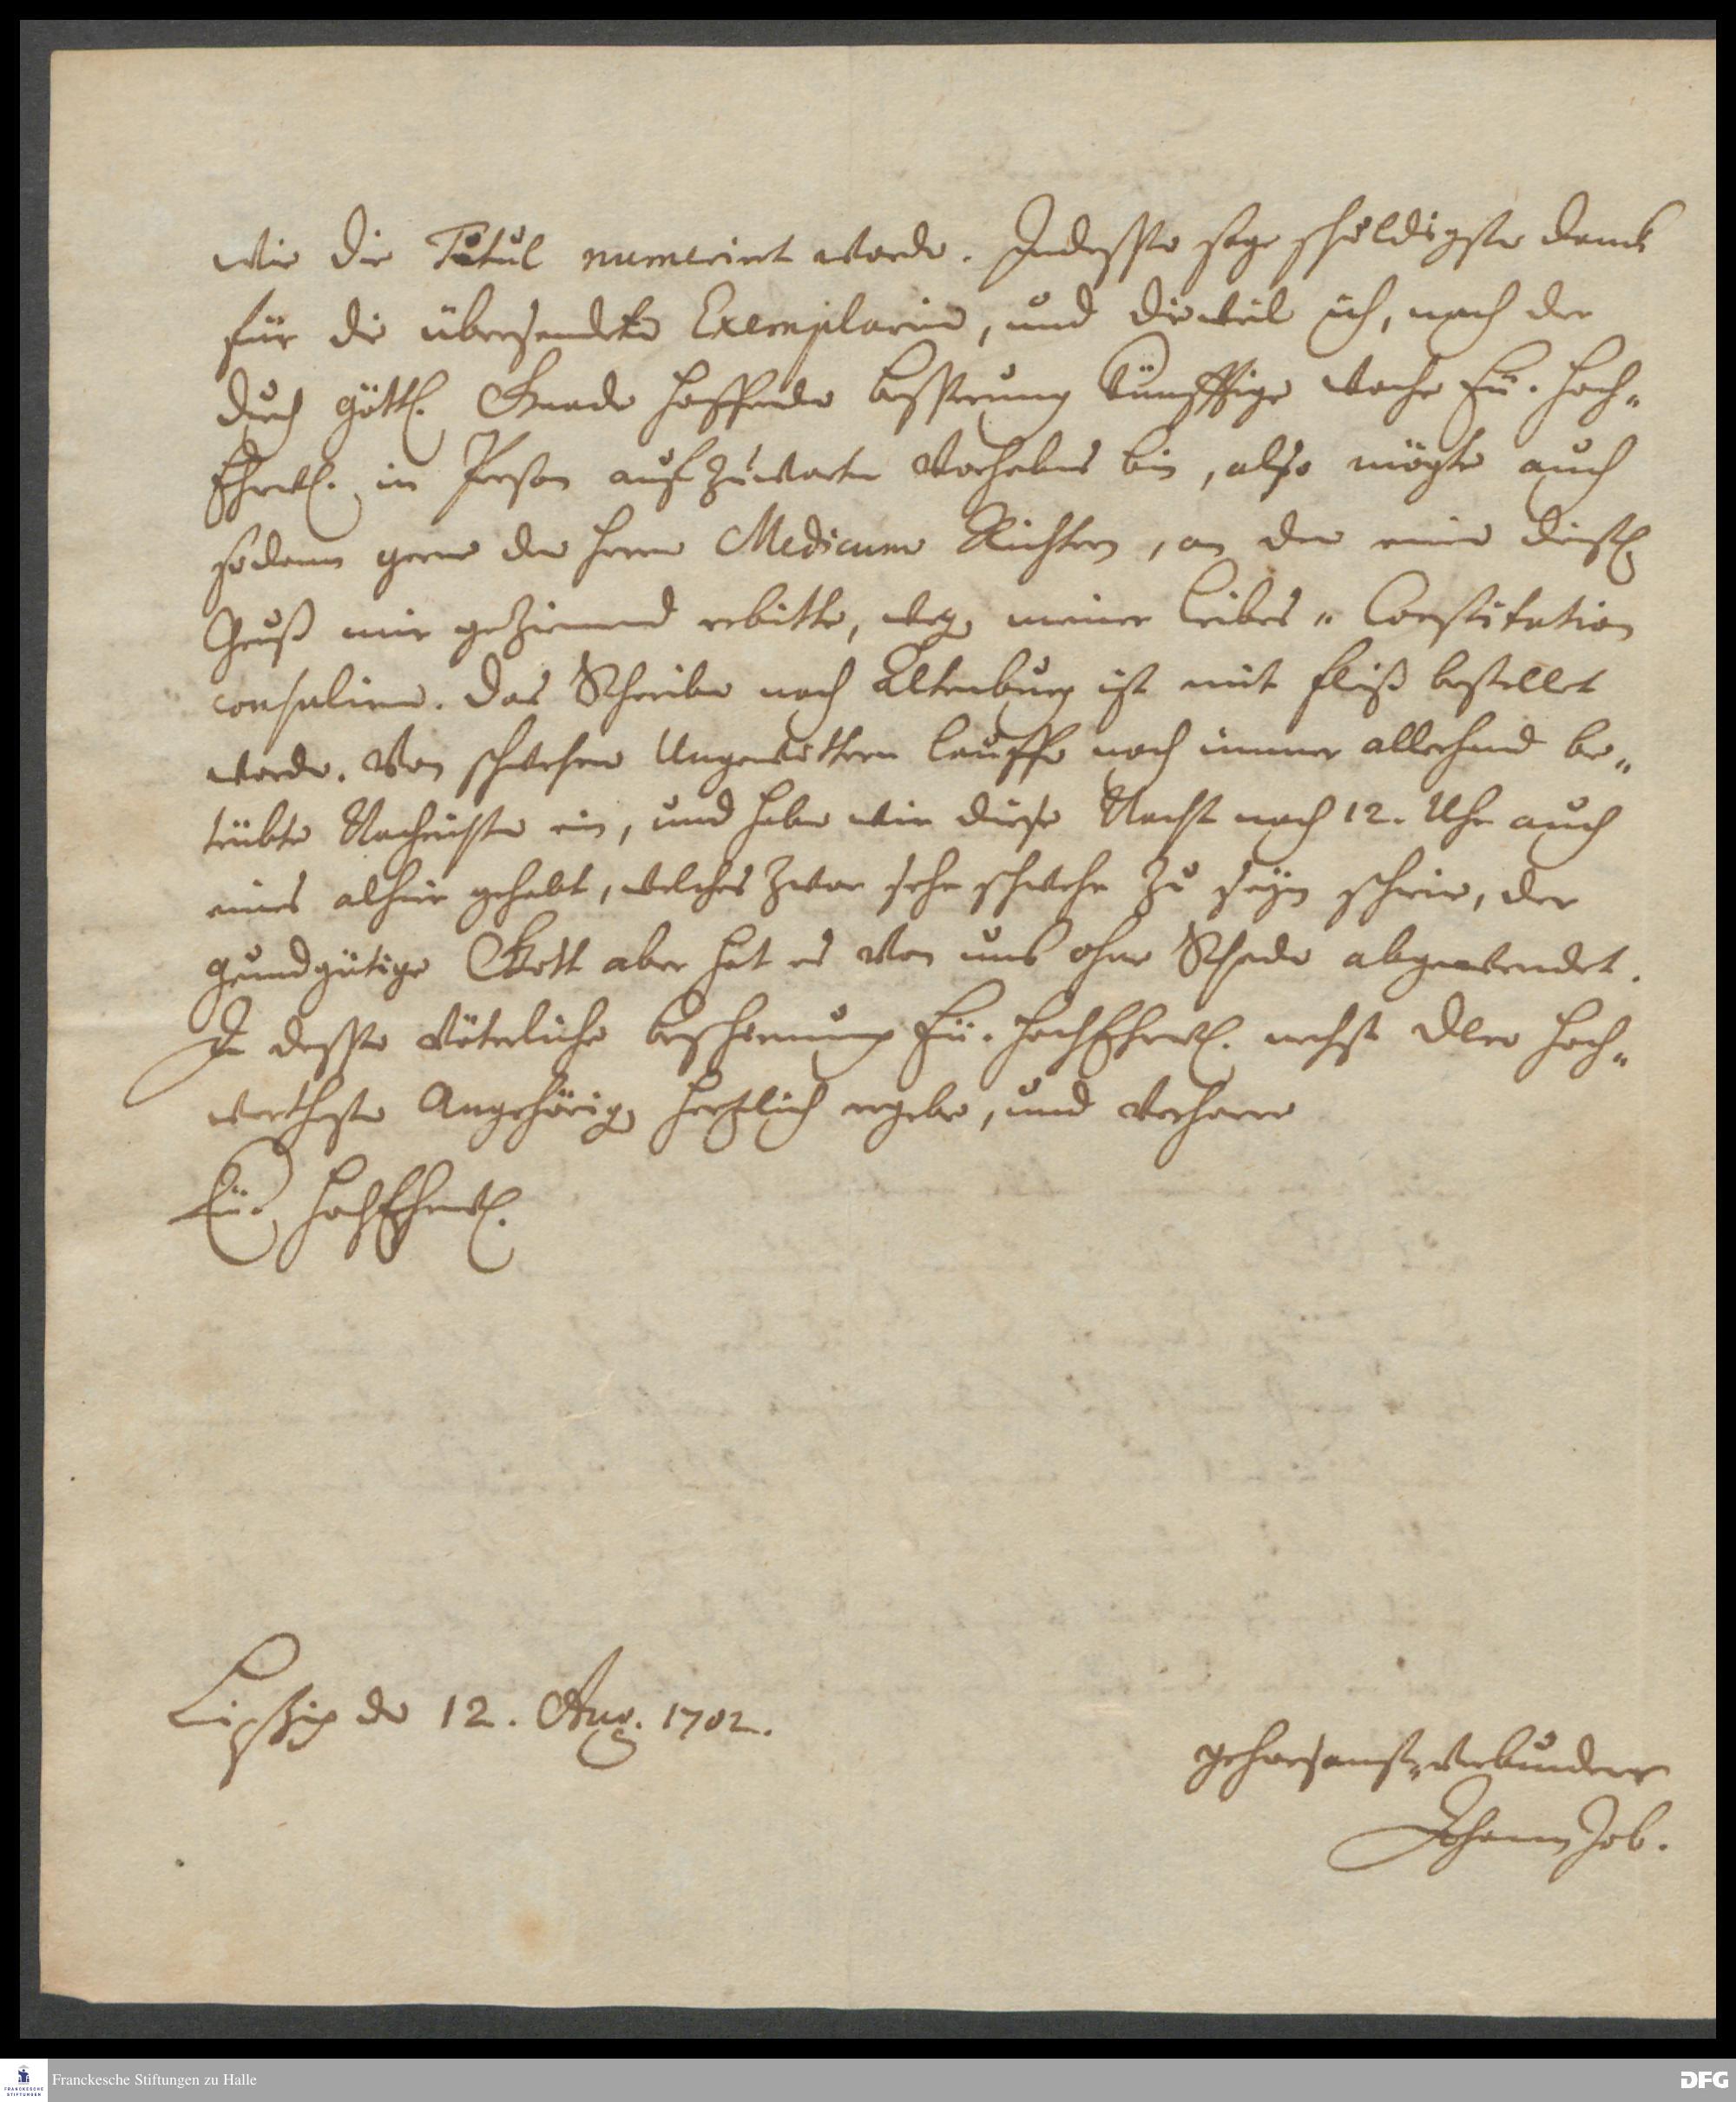 wie die Titul numerirt worden. Indessen sage schuldigsten danck
für die übersendeten Exemplarien, und dieweil ich, nach der
durch göttl. Gnade hoffenden besserung künfftige Woche Eü. Hoch-
Ehrw. in Person aufzuwarten Vorhabens bin, also mögte auch
sodann gerne den Herrn Medicum Richtern, an den einen dienstl
Gruß mir geziemend erbitte, weg. meiner Leibes-Constitution
consuliren. Das Schreiben nach Altenburg ist mit fleiß bestellet
worden. Von schwehren Ungewittern lauffen noch immer allerhand be-
trübte Nachrichten ein, und haben wir diese Nacht nach 12. Uhr auch
eines alhier gehabt, welches zwar sehr schwehr zu seyn schien, der
grundgütige Gott aber hat es Von uns ohne Schaden abgewendet.
In dessen Väterliche beschirmung Eü. HochEhrw. nechst Dero Hoch-
werthesten Angehörig. hertzlich ergebe, und Verharre
Eü. HochEhrw.
Leipzig den 12. Aug. 1702.
gehorsamst-Verbundener
Johann Job.
Franckesche Stiftungen zu Halle
FRANCKESCHE STIFTUNGEN
DFG